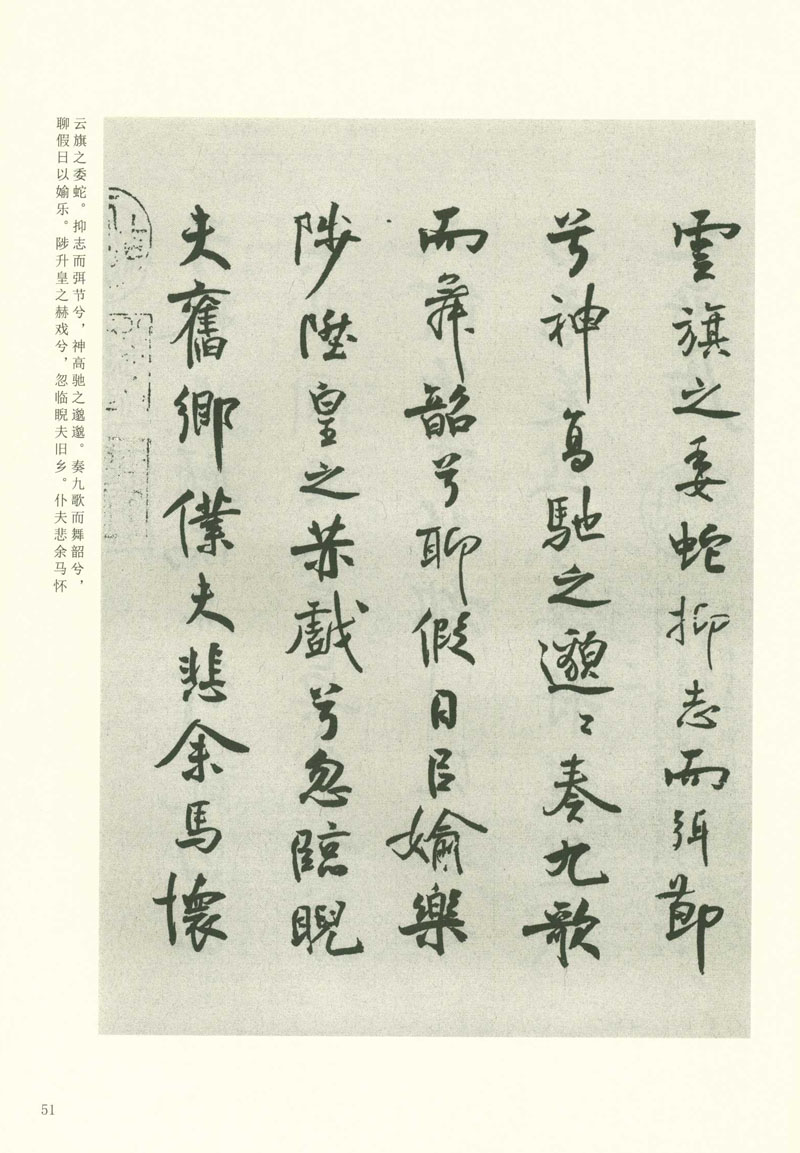 雲旗之委蛇抑志而弭節
兮神高馳之邈〻奏九歌
而舞韶兮聊假日㠯媮樂
陟陞皇之赫戲兮忽臨睨
夫舊鄉僕夫悲余馬懷
云旗之委蛇。抑志而弭节兮，神高驰之邈邈。奏九歌而舞韶兮，
聊假日以媮乐。陟升皇之赫戏兮，忽临睨夫旧乡。仆夫悲余马怀
51